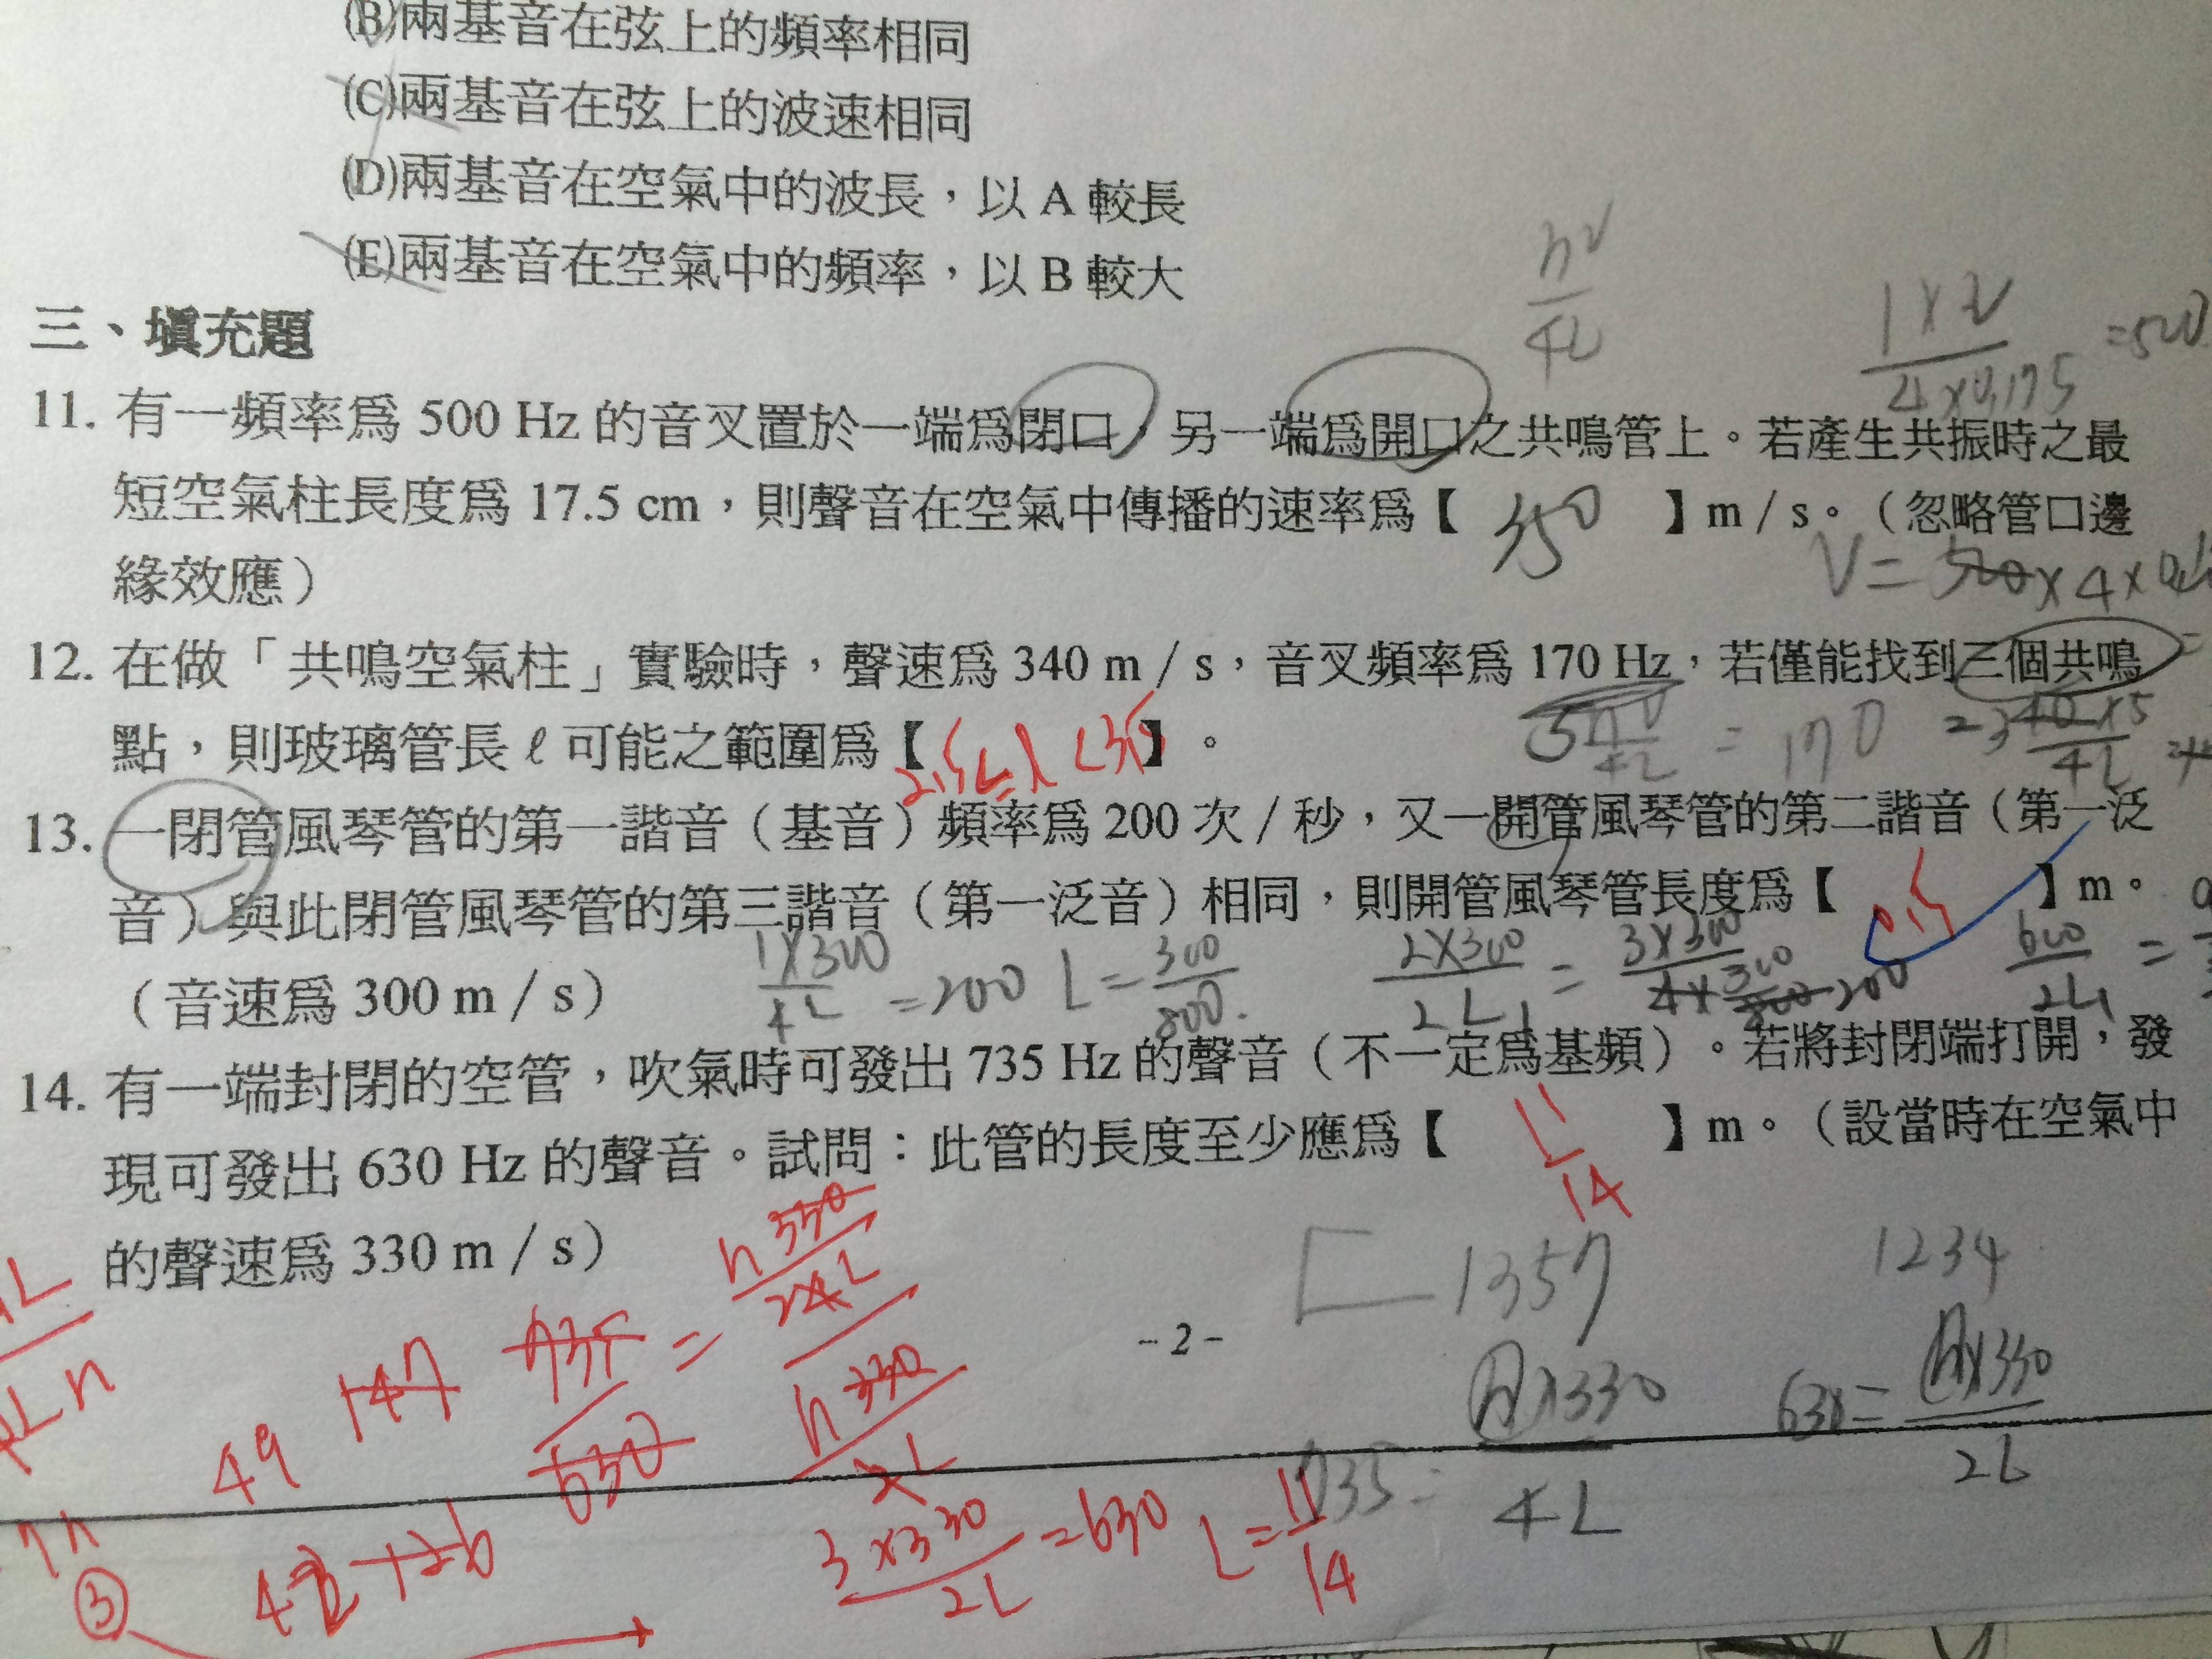 (B)兩基音在弦上的頻率相同
(C)兩基音在弦上的波速相同
(D)兩基音在空氣中的波長，以 A 較長
(E)兩基音在空氣中的頻率，以 B 較大
三、填充題
11. 有一頻率爲 500 Hz 的音叉置於一端爲閉口，另一端爲開口之共鳴管上。若產生共振時之最
短空氣柱長度爲 17.5 cm，則聲音在空氣中傳播的速率爲【 350 】m / s。（忽略管口邊
緣效應）
12. 在做「共鳴空氣柱」實驗時，聲速爲 340 m / s，音叉頻率爲 170 Hz，若僅能找到三個共鳴
點，則玻璃管長 ℓ 可能之範圍爲【 2.5≤l<3.5 】。
13. 一閉管風琴管的第一諧音（基音）頻率爲 200 次 / 秒，又一開管風琴管的第二諧音（第一泛
音）與此閉管風琴管的第三諧音（第一泛音）相同，則開管風琴管長度爲【 0.5 】m。
（音速爲 300 m / s）
1×300/4L =200 L=300/800
2×300/2L₁ = 3×300/4×300/800 200
600/2L₁ =
14. 有一端封閉的空管，吹氣時可發出 735 Hz 的聲音（不一定爲基頻）。若將封閉端打開，發
現可發出 630 Hz 的聲音。試問：此管的長度至少應爲【 11/14 】m。（設當時在空氣中
的聲速爲 330 m / s）
1×V/4×0.175 =500
V=500×4×
1357
1234
- 2 -
49 147 735/630 =
n×330/4L
735=
630= n×330/2L
42 126
3×330/2L =630 L=11/14
③